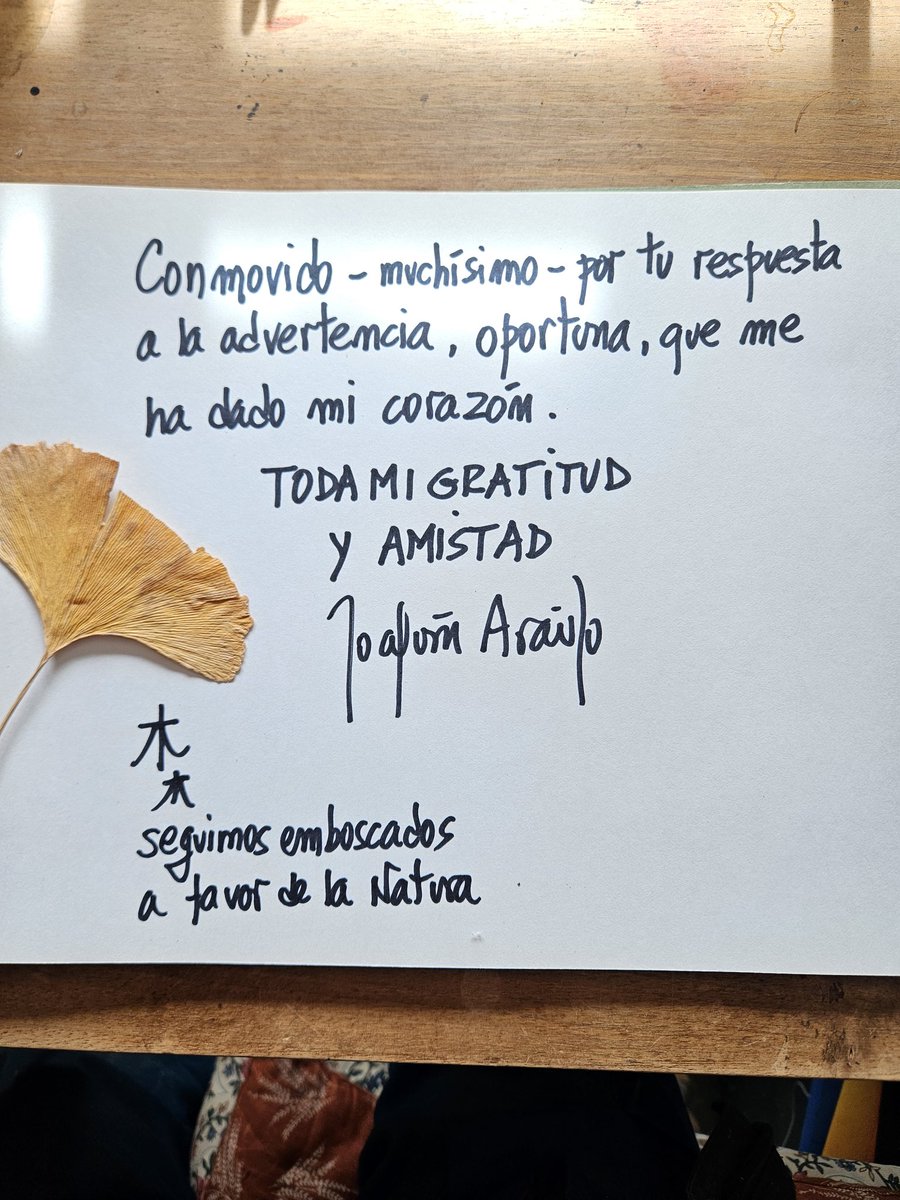 Conmovido - muchísimo - por tu respuesta
a la advertencia, oportuna, que me
ha dado mi corazón.
TODA MI GRATITUD
Y AMISTAD
Joaquín Araújo
木
木
seguimos emboscados
a favor de la Natura